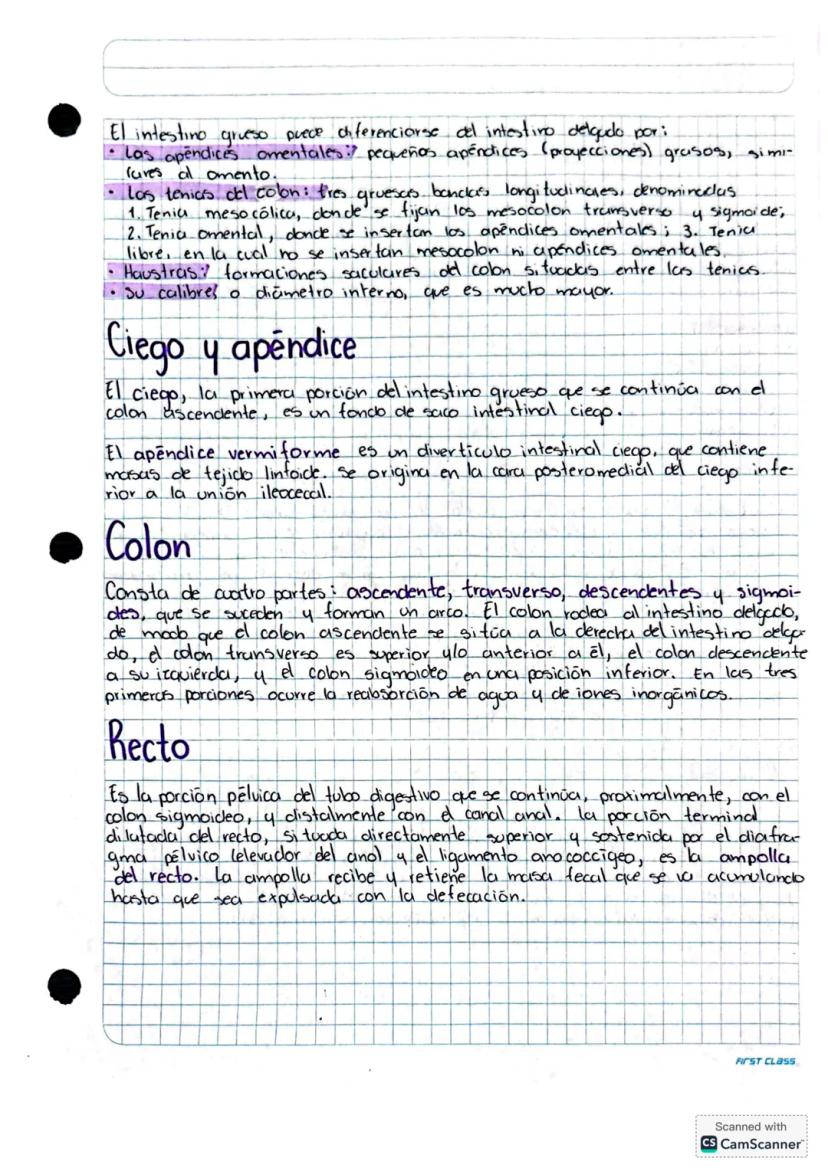 El intestino grueso puede diferenciarse del intestino delgado por:
• Los apéndices omentales: pequeños apéndices (proyecciones) grasos, simi-
lares al omento.
• Las tenias del colon: tres gruesas bandas longitudinales, denominadas
1. Tenia mesocólica, donde se fijan los mesocolon transverso y sigmoide;
2. Tenia omental, donde se insertan los apéndices omentales; 3. Tenia
libre, en la cual no se insertan mesocolon ni apéndices omentales.
• Haustras: formaciones saculares del colon situadas entre las tenias.
• Su calibre o diámetro interno, que es mucho mayor.
Ciego y apéndice
El ciego, la primera porción del intestino grueso que se continúa con el
colon ascendente, es un fondo de saco intestinal ciego.
El apéndice vermiforme es un divertículo intestinal ciego, que contiene
masas de tejido linfoide. Se origina en la cara posteromedial del ciego infe-
rior a la unión ileocecal.
Colon
Consta de cuatro partes: ascendente, transverso, descendentes y sigmoi-
des, que se suceden y forman un arco. El colon rodea al intestino delgado,
de modo que el colon ascendente se sitúa a la derecha del intestino delga-
do, el colon transverso es superior y/o anterior a él, el colon descendente
a su izquierda, y el colon sigmoideo en una posición inferior. En las tres
primeras porciones ocurre la reabsorción de agua y de iones inorgánicos.
Recto
Es la porción pélvica del tubo digestivo que se continúa, proximalmente, con el
colon sigmoideo, y distalmente con el canal anal. La porción terminal
dilatada del recto, situada directamente superior y sostenida por el diafra-
gma pélvico (elevador del ano) y el ligamento anococcígeo, es la ampolla
del recto. La ampolla recibe y retiene la masa fecal que se va acumulando
hasta que sea expulsada con la defecación.
FIRST CLASS
Scanned with
CS CamScanner